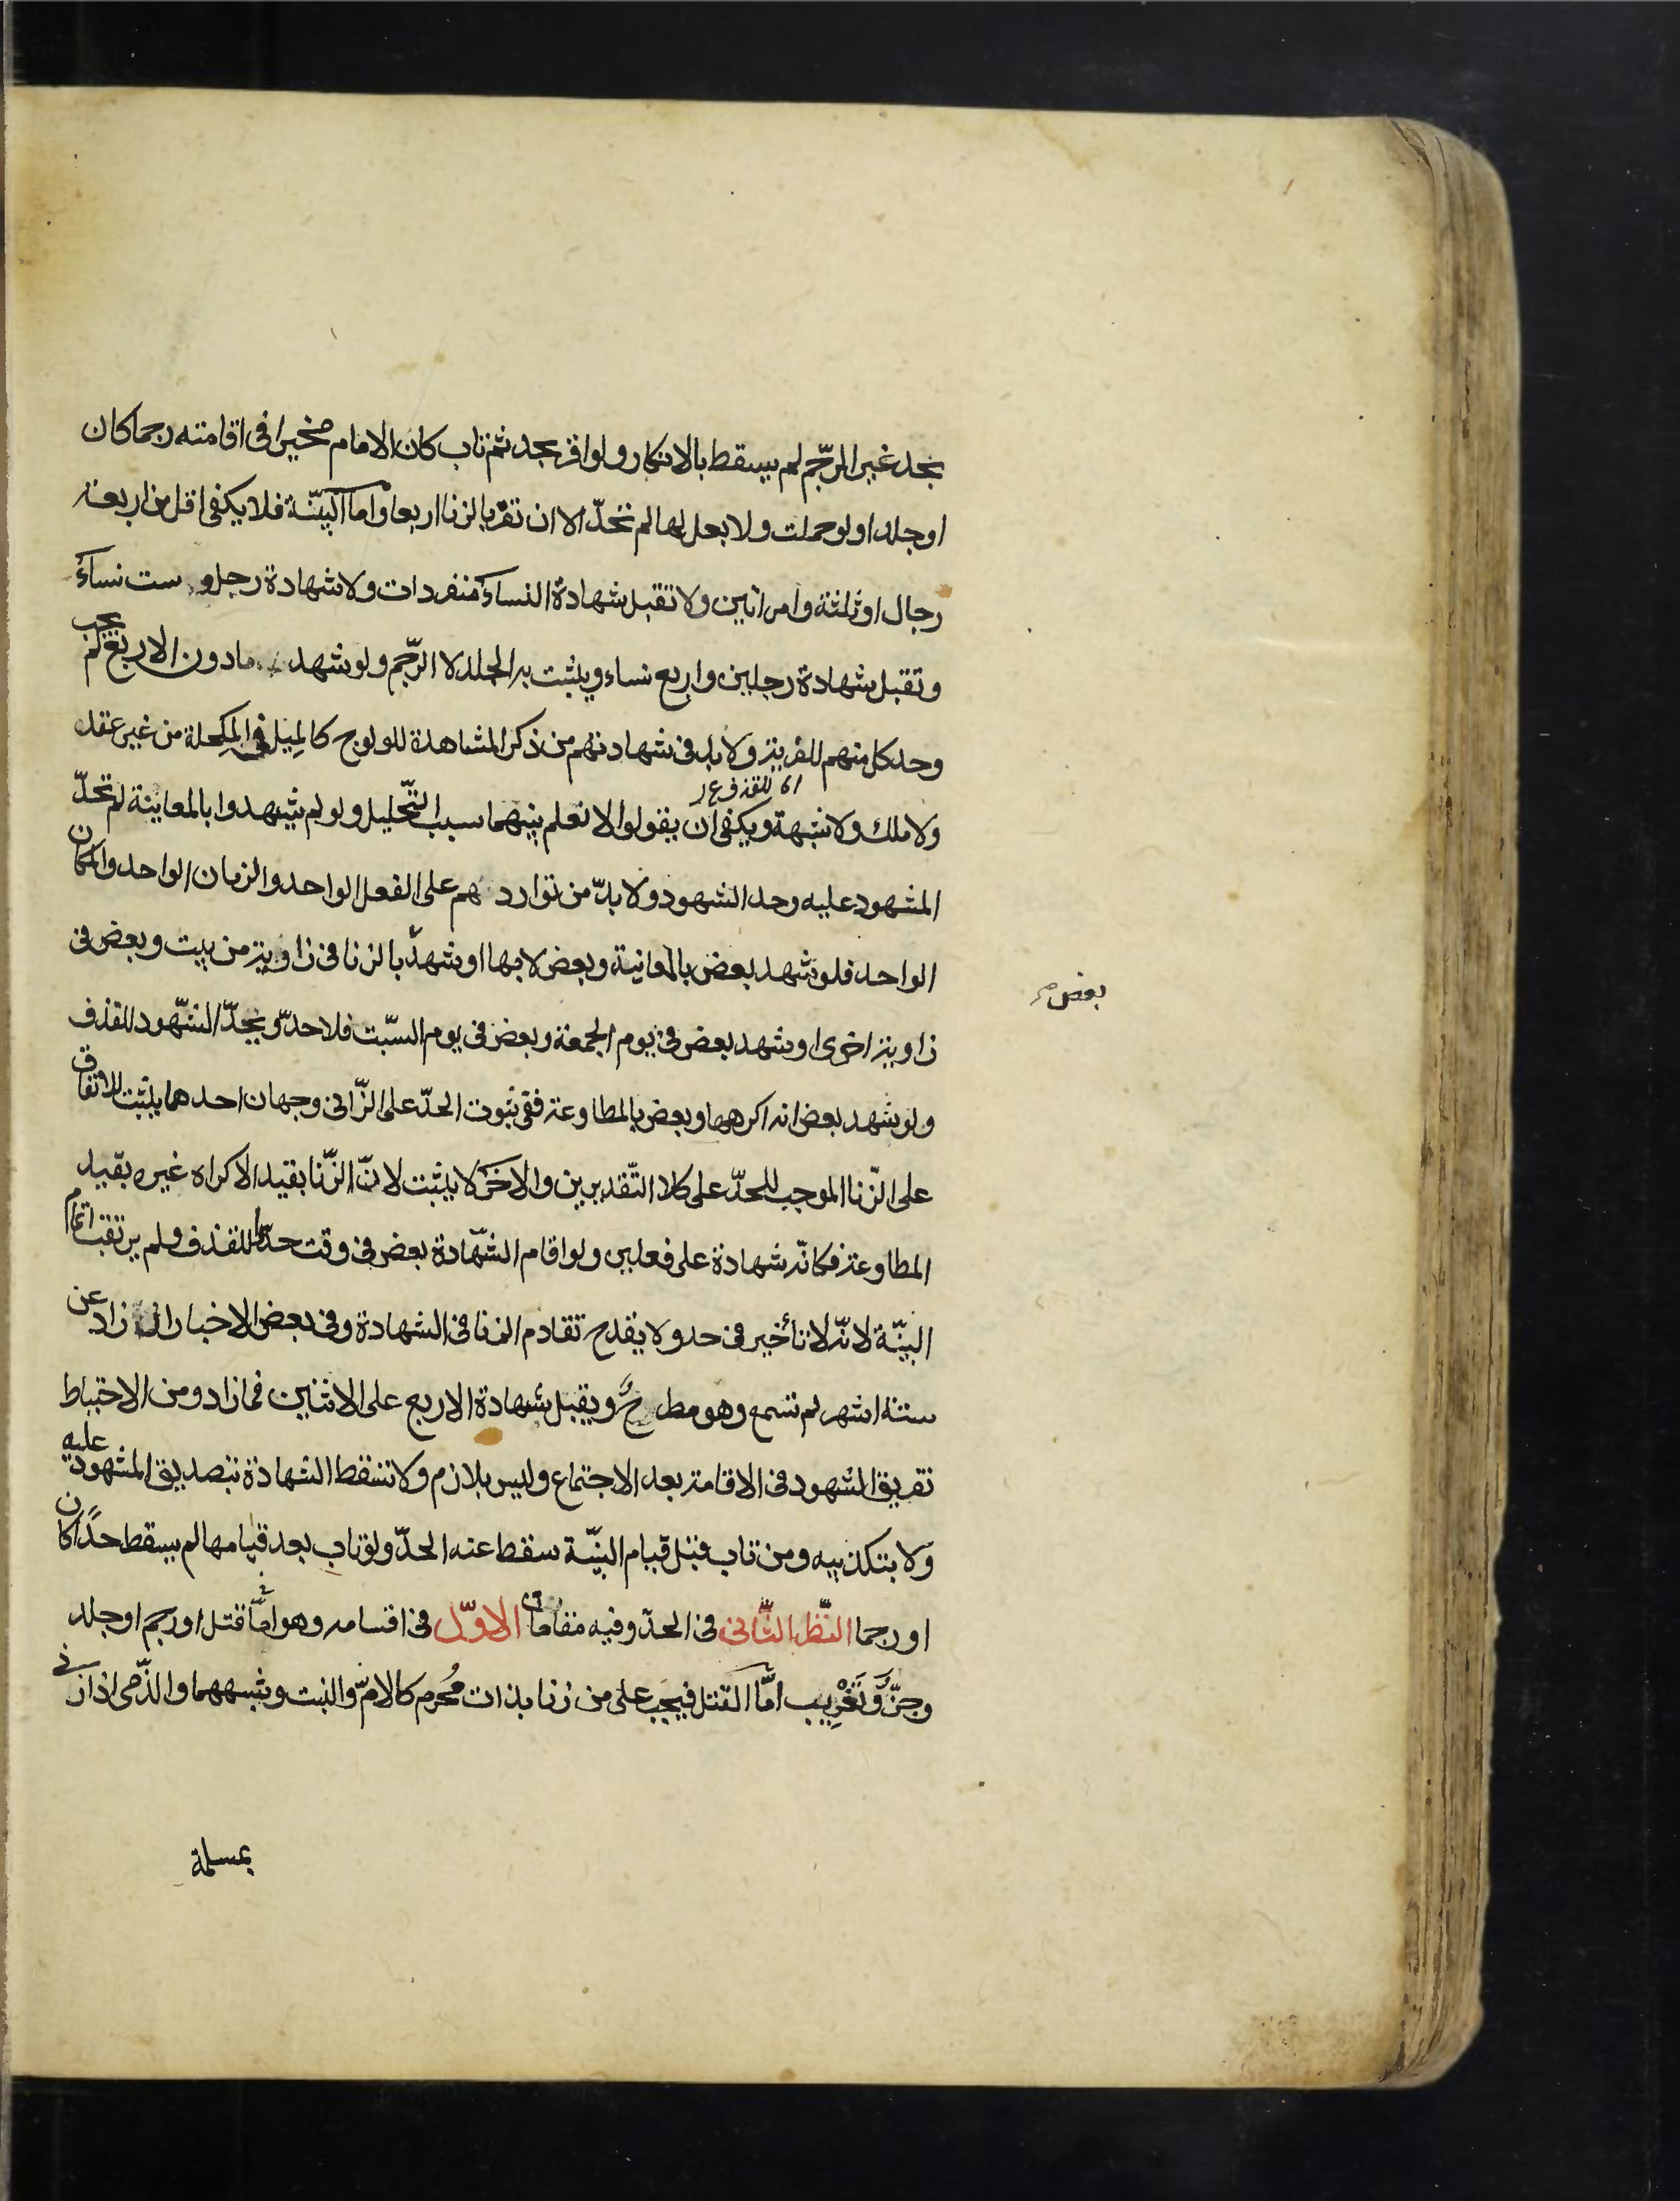 بحد غير الرّجم لم يسقط بالانكار ولو اقر بحد ثم تاب كان الامام مخيرا فى اقامته رجما كان
او جلدا ولو حملت ولا بعل لها لم تحدّ الا ان تقرّ بالزنا اربعا واما البيّنة فلا يكفى اقل من اربعة
رجال او ثلثة وامراتين ولا تقبل شهادة النساء منفردات ولا شهادة رجل وست نساء
وتقبل شهادة رجلين واربع نساء ويثبت به الجلد لا الرّجم ولو شهد مادون الاربع لم يجب
وحد كل منهم للفرية ولا بد فى شهادتهم من ذكر المشاهدة للولوج كالميل فى المكحلة من غير عقد
ولا ملك ولا شبهة ويكفى ان يقولوا لا نعلم بينهما سبب التّحليل ولو لم يشهدوا بالمعاينة لم تحدّ
المشهود عليه وحد الشهود ولا بدّ من تواردهم على الفعل الواحد والزمان الواحد والمكان
الواحد فلو شهد بعض بالمعاينة وبعض لا بها او شهد بالزنا فى زاوية من بيت وبعض فى
بعض
زاوية اخرى او شهد بعض فى يوم الجمعة وبعض فى يوم السّبت فلا حدّ ويحدّ الشّهود للقذف
ولو شهد بعض انه اكرهها وبعض بالمطاوعة ففى ثبوت الحدّ على الزّانى وجهان احدهما يثبت للاتفاق
على الزّنا الموجب للحدّ على كلا التّقديرين والاخر لا يثبت لانّ الزّنا بقيد الاكراه غيره بقيد
المطاوعة فكانّه شهادة على فعلين ولو اقام الشّهادة بعض فى وقت حدّوا للقذف ولم يرتقب اتمام
البيّنة لانّه لا تأخير فى حد ولا يقدح تقادم الزنا فى الشهادة وفى بعض الاخبار ان زاد عن
ستة اشهر لم تسمع وهو مطرح ويقبل شهادة الاربع على الاثنين فمازاد ومن الاحتياط
تفريق الشهود فى الاقامة بعد الاجتماع وليس بلازم ولا تسقط الشهادة بتصديق المشهود عليه
ولا بتكذيبه ومن تاب قبل قيام البيّنة سقط عنه الحدّ ولو تاب بعد قيامها لم يسقط حدا كان
او رجما النّظر الثّانى فى الحدّ وفيه مقامات الاوّل فى اقسامه وهو امّا قتل او رجم او جلد
وجزّ وتَغْرِيب امّا القتل فيجب على من زنا بذات مُحرم كالامّ والبنت وشبههما والذّمى اذا زنى
بمسلمة